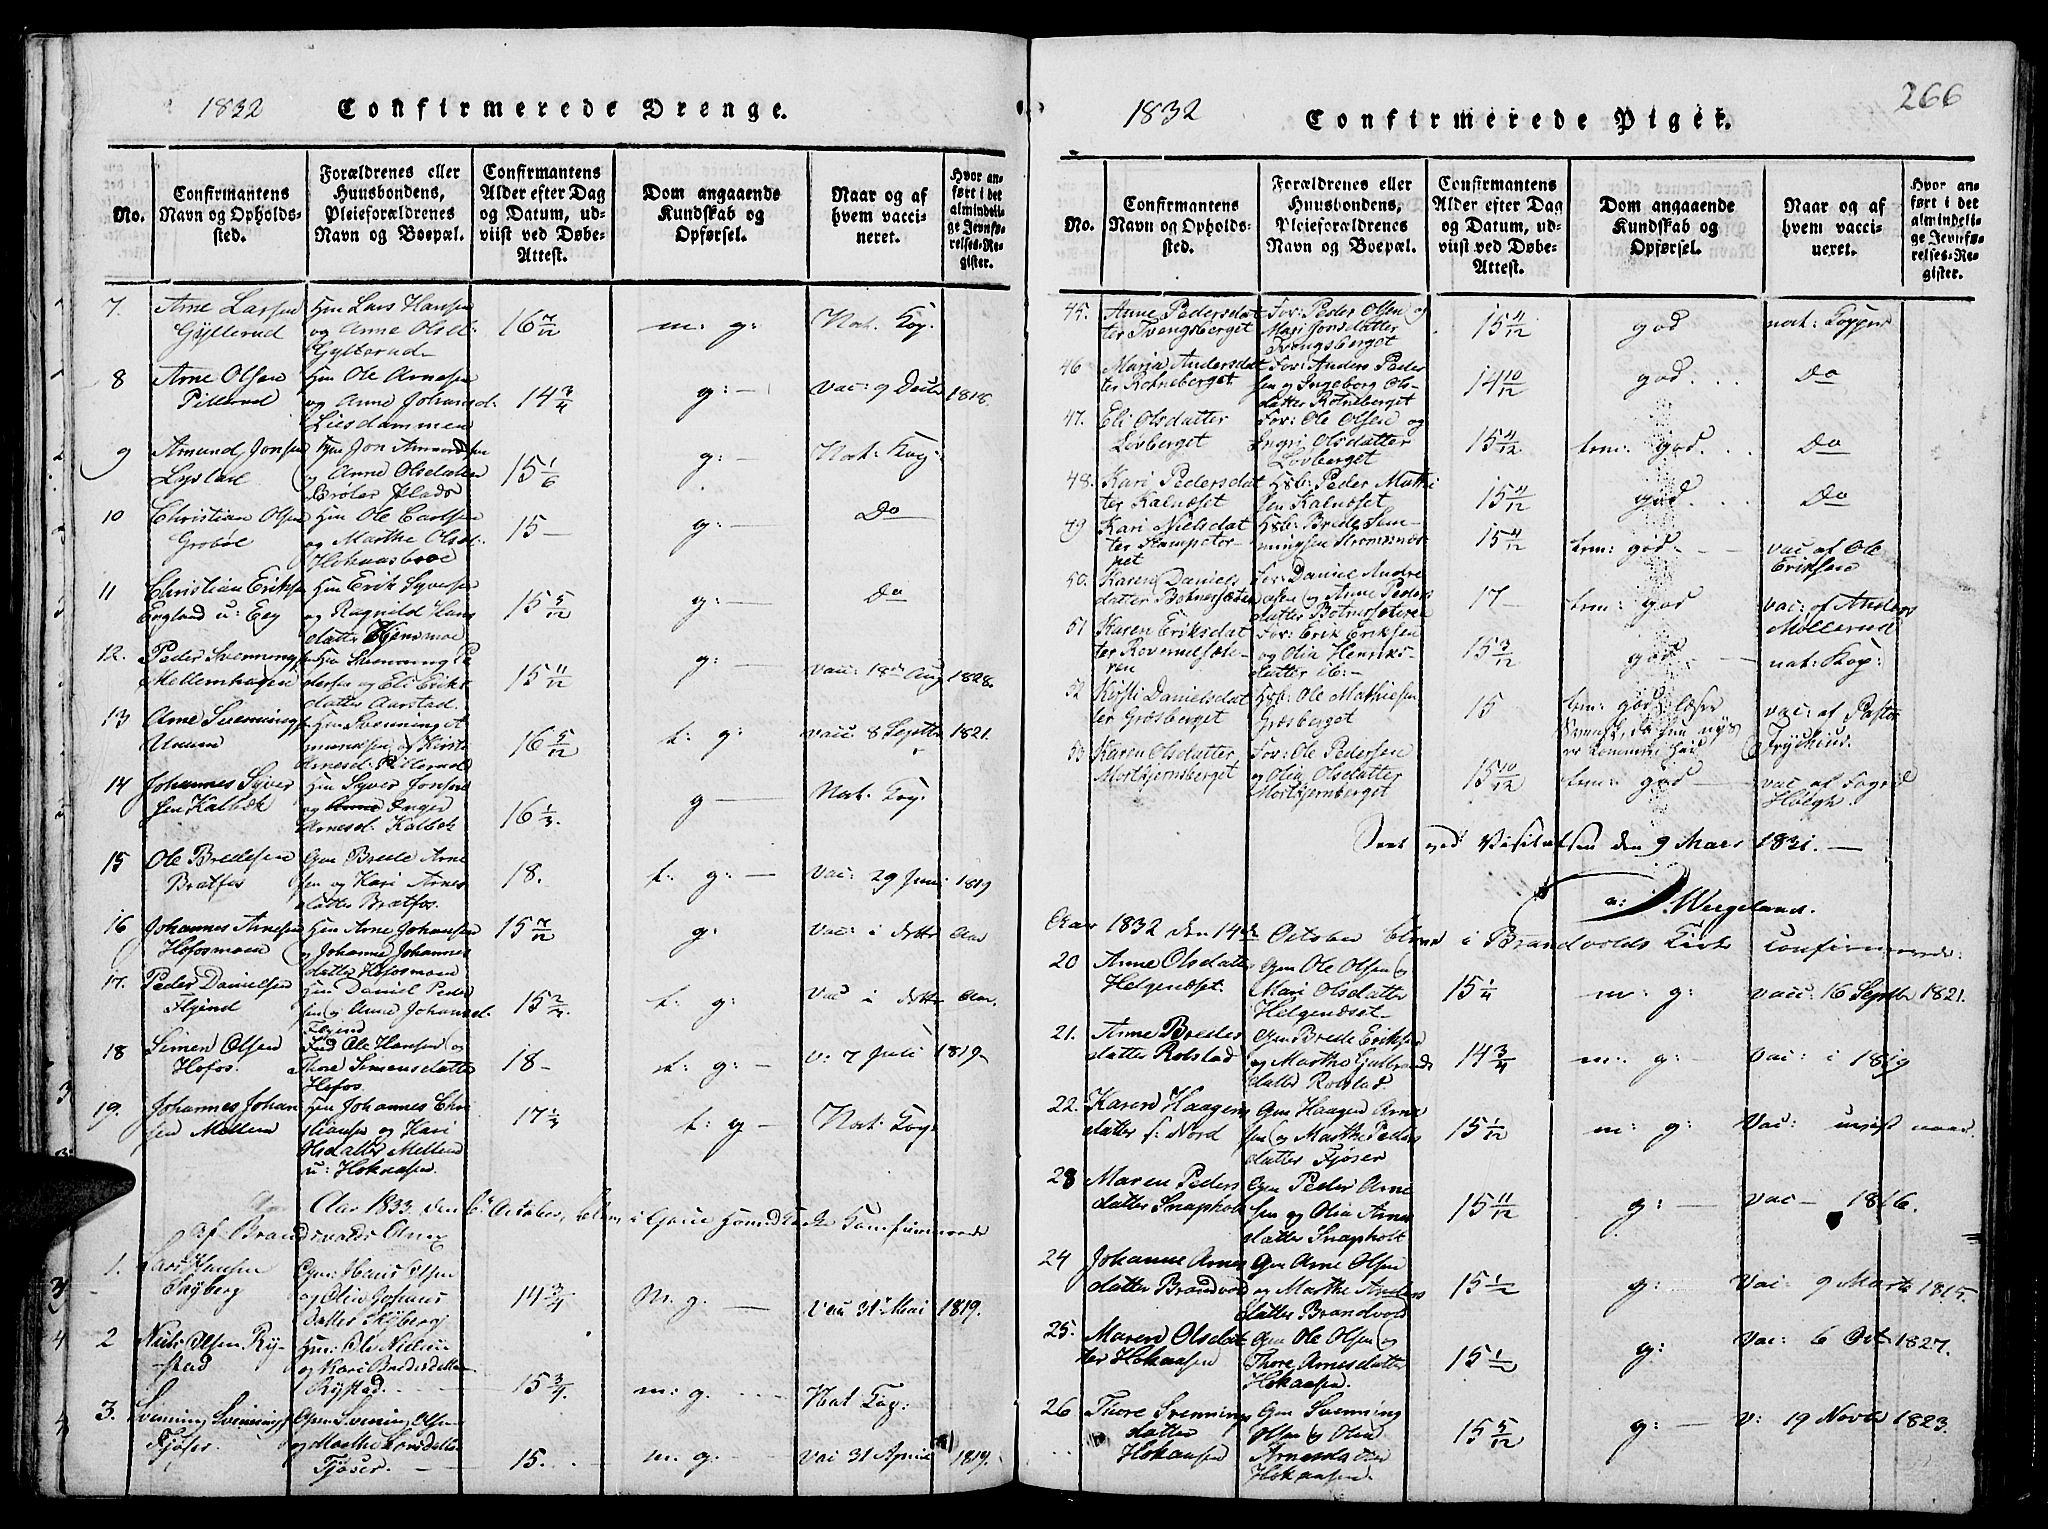 1832
Confirmerede Drenge.
No.
Confirmantens
Navn og Opholds-
sted.
Forældrenes eller
Huusbondens,
Pleieforældrenes
Navn og Boepæl.
Confirmantens
Alder efter Dag
og Datum, ud-
viist ved Døbe-
Attest.
Dom angaaende
Kundskab og
Opførsel.
Naar og af
hvem vacci-
neret.
Hvor an-
ført i det
almindeli-
ge Jevnfø-
relses-Re-
gister.
7. Arne Larsen
Gylterud
Hm Lars Hansen
og Anne Olsd.
Gylterud
16 7/12
m: g:
Nat. Kop.
8 Arne Olsen
Pitterud
Hm Ole Arnesen
og Anne Johansd:
Liesdammen
14 3/4
g: —
vac: 9 1818.
9 Amund Jonsen
Lystad
Hm Jon Amundsen
og Anne Olsdatter
Brøler Plads
15 1/6
g: —
Nat: Kop:
10 Christian Olsen
Grobøl
Hm Ole Carlsen
og Marthe Olsd:
15 —
g: —
Do
11 Christian Eriksen
England u: Eeg
Hm Erik Syversen
og Ragnild Hans
datter
15 5/12
g: —
Do
12. Peder Svennings
Mellemhagen
Hm Svenning Pe
dersen og Eli Eriks
datter Aarstad
15 11/12
g: —
vac: 18de Aug 1828.
13 Arne Svennings
Hm Svenning
mundsen og Kirsti
Arnesd: Pitterud
16 5/12
t. g:
vacc 8 Septbr 1821.
14 Johannes Syver
sen Kalbæk
Hm Syver Jonsen
og Anne Inger
Arnesd: Kalbæk
16 1/3.
g —
Nat. Kop.
15 Ole Bredesen
Bratfos
Gm Brede Arne
sen og Kari Arnes
datter Brætfos.
18.
t. g: —
vac: 29 Juni 1819
16 Johannes Arnesen
Hofosmoen
Hm Arne Johansen
og Johanne Johannes
datter Hofosmoen
15 7/12
g:
vac: i dette Aar
17. Peder Danielsen
Flyind
Hm Daniel Peder
sen og Anne Johansd.
Flyind
t. g:
vac i dette Aar.
18 Simen Olsen
Hofos.
Ind Ole Hansen og
Thore Simensdatter
Hofos.
18 —
t. g: —
v: 7 Juli 1819
19. Johannes Johan
sen Mellem
Hm Johannes Chri
stiansen og Kari
Olsdatter Mellem
u: Hokaasen.
t. g —
Nat: Kop
Aar 1833 den 6te October, bleve i Grue Hoved Kirke Confirmerede
af Brandvolds Anex
1. Lars Hansen
Skyberg
Gm: Hans Olsen
og Olia Johans
datter Skyberg
14 3/4
m. g. —
vac 31te Mai 1819.
2 Niels Olsen Ry-
stad
Hm: Ole Nielsen
og Kari Bredesdatter
Rystad
15 3/4.
m: g.
Nat Kop:
3. Svenning Svennings
Fjøser.
Gm Svening Olsen
og Marthe Larsdatter
Fjøser. —
15.
m. g. —
vac 31 April 1819.
1832
266
Confirmerede Piger.
No.
Confirmantens
Navn og Opholds-
sted.
Forældrenes eller
Huusbondens,
Pleieforældrenes
Navn og Boepæl.
Confirmantens
Alder efter Dag
og Datum, ud-
viist ved Døbe-
Attest.
Dom angaaende
Kundskab og
Opførsel.
Naar og af
hvem vacci-
neret.
Hvor an-
ført i det
almindeli-
ge Jevnfø-
relses-Re-
gister.
45. Anne Pedersdat
ter Tvengsberget
For: Peder Olsen og
Mari Jonsdatter
Tvengsberget
15 11/12
god
nat: Kopper
46 Maria Andersdat
ter Rotneberget.
For: Anders Peder
sen og Ingeborg Ols
datter Rotneberget
14 10/12
god . . .
Do
47. Eli Olsdatter
Lovberget
For: Ole Olsen og
Ingri Olsdatter
Lovberget
15 11/12
tem: god . . .
Do
48. Kari Pedersdat
ter Kalneset
Hsb: Peder Mathi
sen Kalneset
15 11/12
god . . .
Do
49 Kari Nielsdat
ter Kampetor-
pet
Hsb: Brede Sem-
mingsen Strømsnor
15 11/12
tem: god —
vac af Ole
Eriksen
50. Karen Daniels
datter Botnersæteren
For: Daniel Andre
asen og Anne Peders
datter Botnersæteren
17 —
tem: god
vac: af Anders
Møllerud
51 Karen Eriksdat
ter
ren
For: Erik Eriksen
og Olia Henriks-
datter ib: —
15 3/12
god — —
nat: Kop:
52 Kirsti Danielsdat
ter Græsberget
Hsb: Ole Mathiesen
Græsberget
15
tem: god, læser
Svensk, da hun nys
er kommen hid
vac: af Pastor
Frychius.
53 Karen Olsdatter
Mortkjernsberget
For: Ole Pedersen
og Olia Olsdatter
Mortkjernsberget
15 10/12
tem: god —
vac af Fogd
Høegh.
Seet ved Visitatsen den 9 Mars 1831. —
n: Wergeland.
Aar 1832 den 14de October bleve i Brandvolds Kirke Confirmerede:
20 Anne Olsdatter
Helgenæset.
Gm Ole Olsen og
Mari Olsdatter
Helgenæset
15 1/4
m: g:
vacc: 16 Septbr 1821.
21. Anne Bredes
datter Rolstad
Gm Brede Eriksen
og Marthe Gulbrands
datter Rolstad
14 3/4
m: g: —
vac: i 1819
22. Karen Haagens
datter f: Nord
Gm Haagen Arne
sen og Marthe Peders
datter Fjøser
15 1/12
m: g:
vac: uvist naar.
23 Maren Peders
datter Snapholt
Gm Peder Arne
sen og Olia Arnes
datter Snapholt
15 11/12
g: —
vac — 1816.
24 Johanne Arnes
datter Brandvol
Gm Arne Olsen
og Marthe Anders
datter Brandvol
15 1/12
g:
vac: 9 Marts 1815
25. Maren Olsdat
ter Hokaasen
Gm Ole Olsen og
Thore Arnesdatter
Hokaasen.
15 1/12
g:
vac: 6 Oct 1827.
26 Thore Svennings
datter
Hokaasen
Gm Svenning
Olsen og Olia
Arnesdatter
Hokaasen.
15 5/12
g: —
v: 19 Novbr 1823.